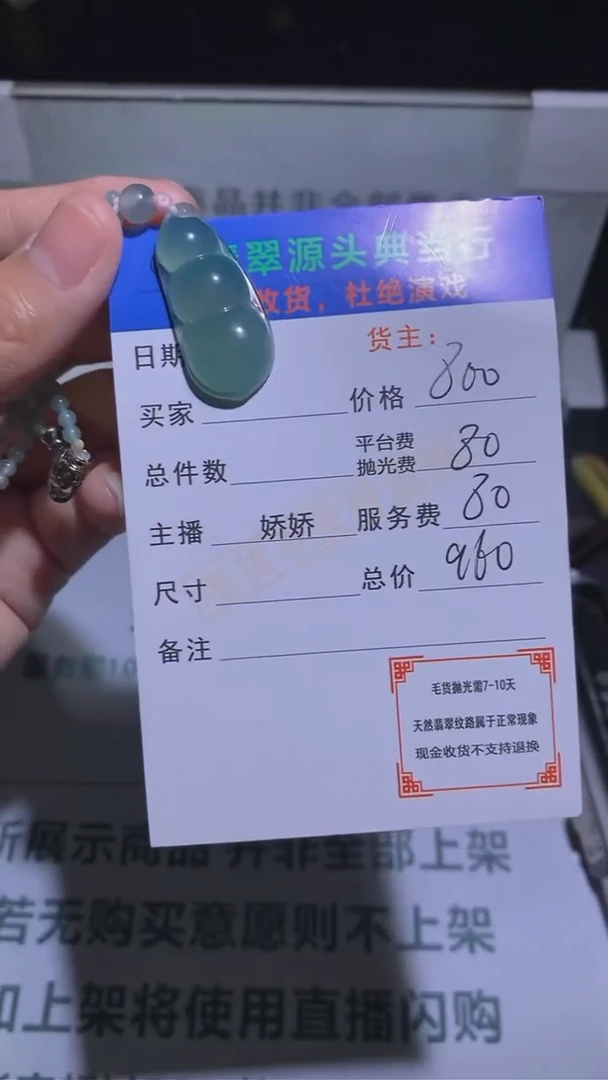 翠源头典当行
收货，杜绝演戏
日期
货主：
买家 价格 800
平台费
总件数 抛光费 80
主播 娇娇 服务费 80
尺寸 总价 960
备注
毛货抛光需7-10天
天然翡翠纹路属于正常现象
现金收货不支持退换
所展示商品 并非全部上架
若无购买意愿则不上架
如上架将使用直播闪购